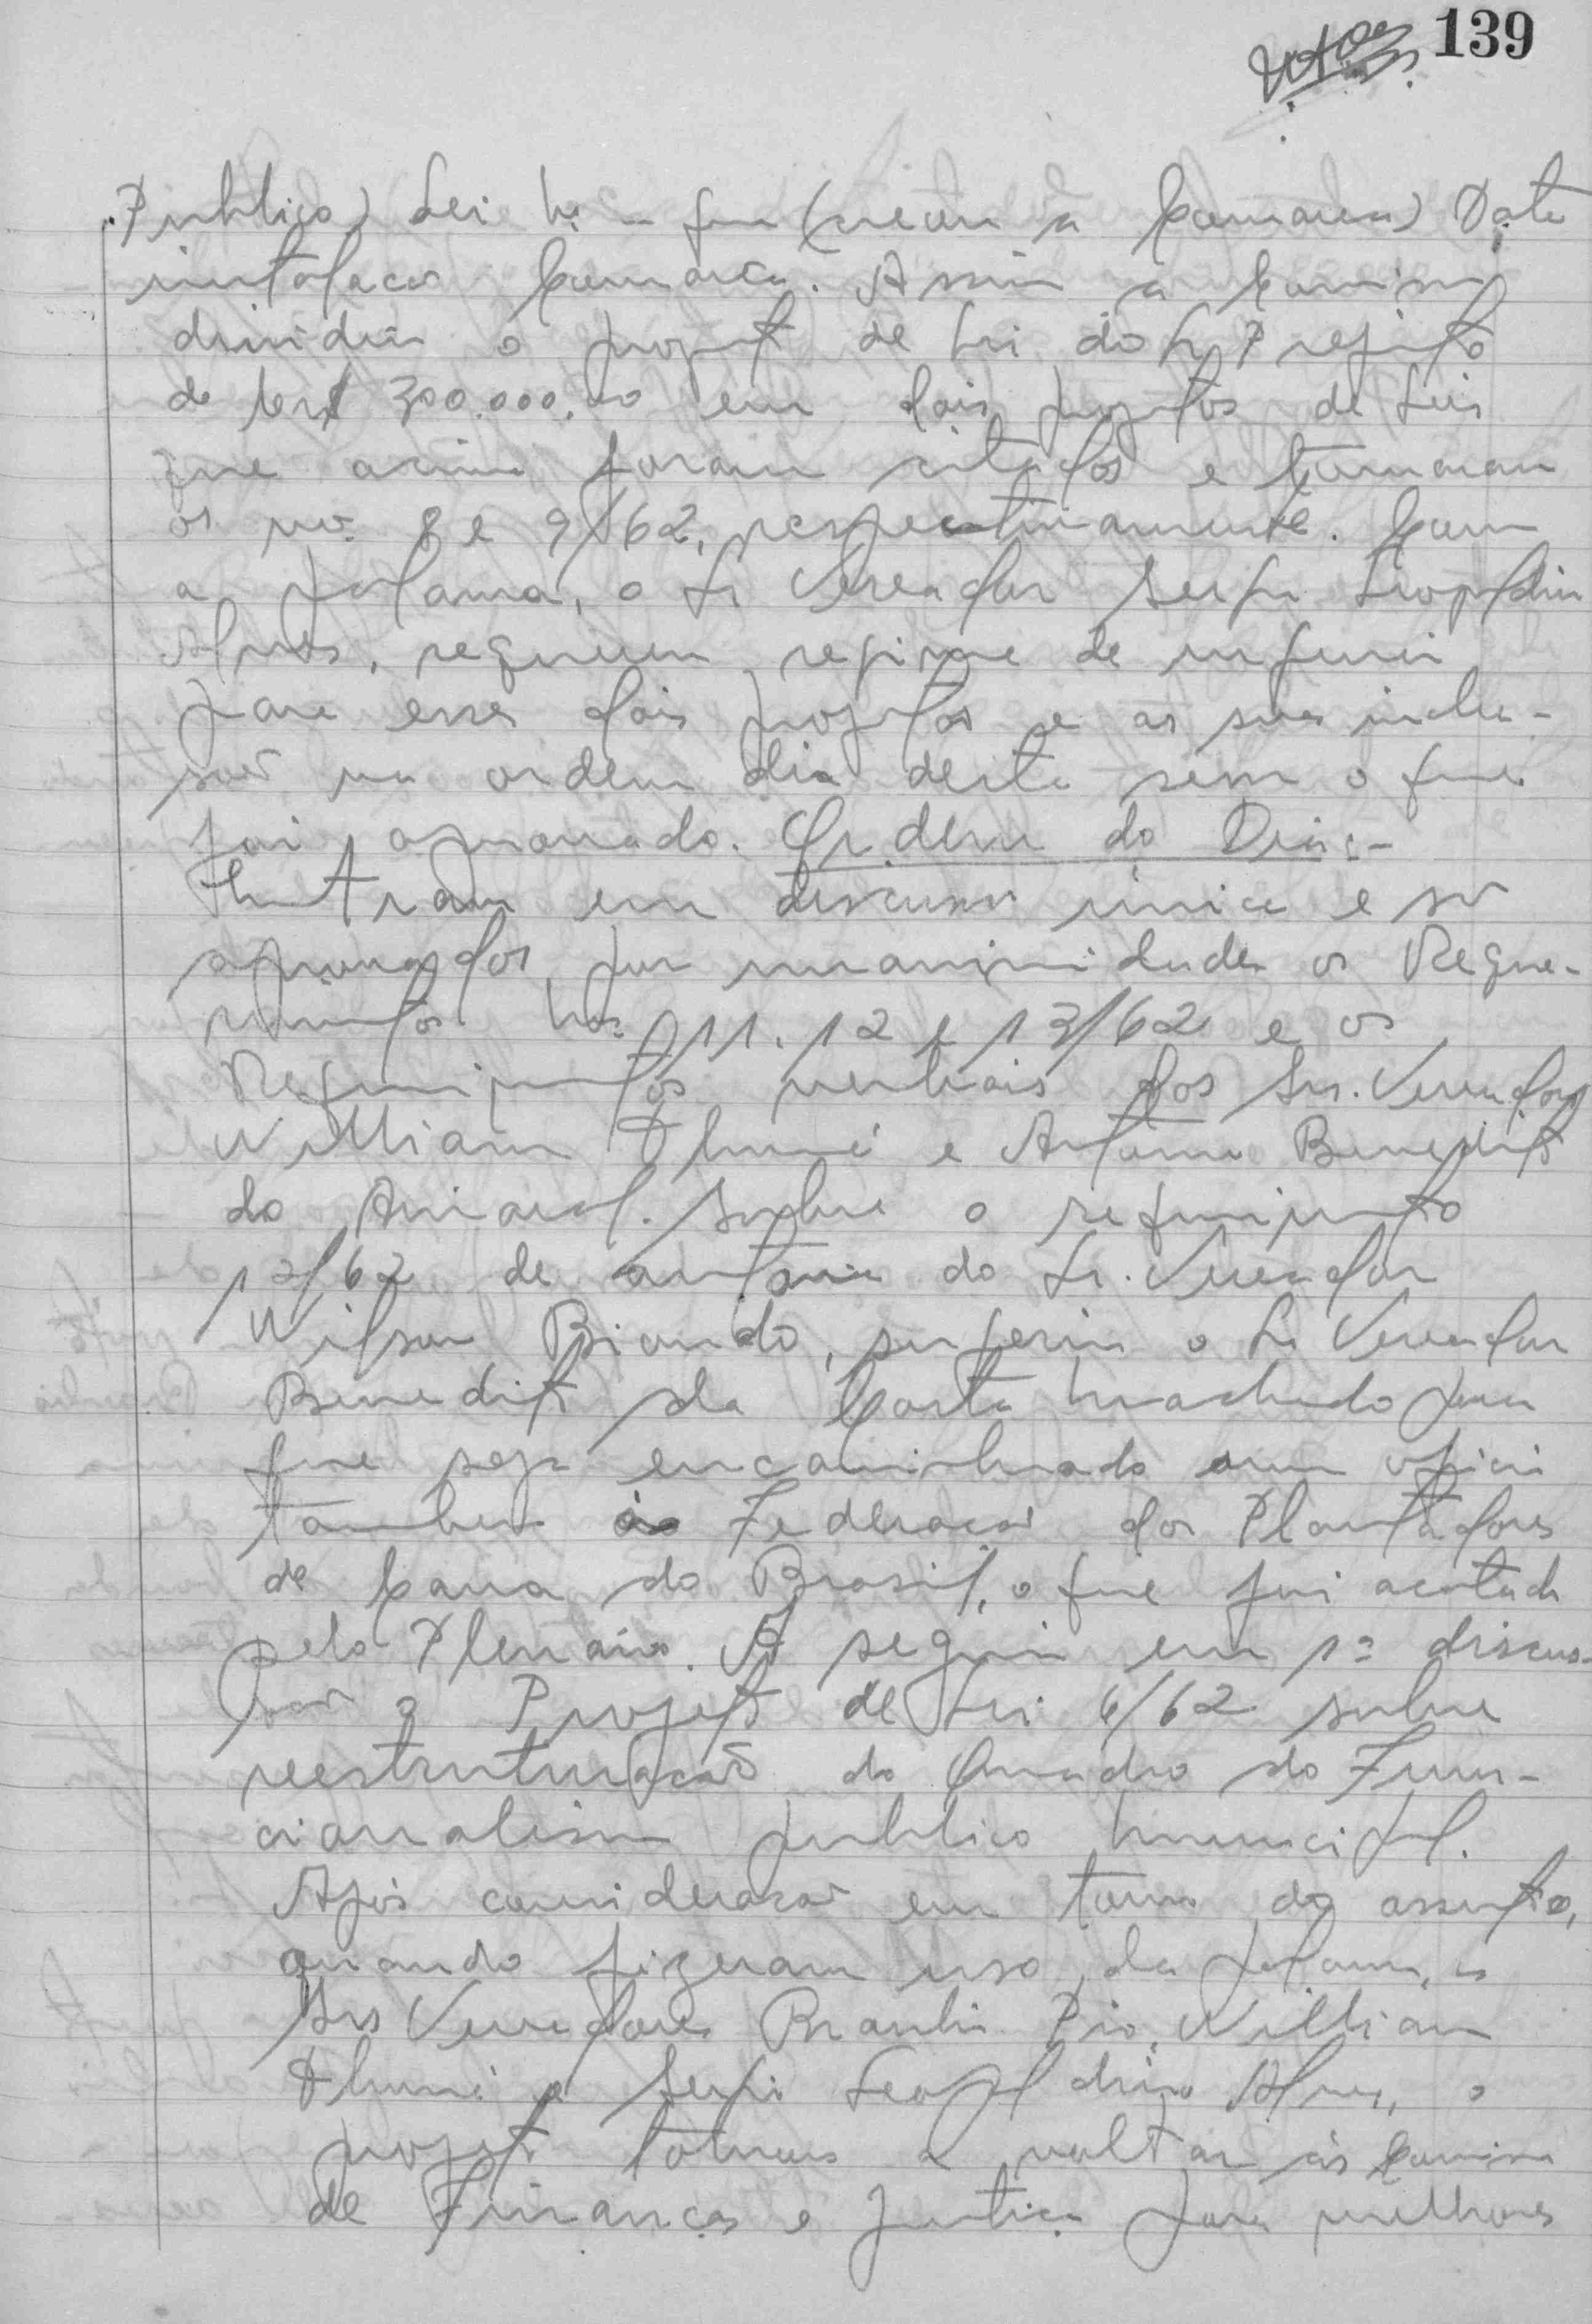 139
Publico) Lei nº - que (creou a Comarca) Data
instalacão Comarca. Assim a Comissão
dividiu o projeto de Lei do Sr Prefeito
de Cr$ 300.000,00 em dois projetos de Leis
que acima foram citados e tomaram
os nos. 8 e 9/62, respectivamente. Com
a palavra, o Sr Vereador Sergio Leopoldino
Alves, requereu regime de urgencia
para esses dois projetos e as suas inclu-
são na ordem dia desta sessão o que
foi aprovado. Ordem do Dia:-
Entraram em discussão unica e são
aprovados por unanimidade os Reque-
rimentos Nos. 11, 12 e 13/62 e os
Requerimentos verbais dos Srs. Vereadores
William Thumé e Antonio Benedito
do Amaral. Sobre o requerimento
12/62 de autoria do Sr. Vereador
Wilson Biondo, sugeriu o Sr Vereador
Benedito da Costa Machado para
que seja encaminhado um oficio
tambem ao Federacão dos Plantadores
de Cana do Brasil, o que foi acatado
pelo Plenario. A seguir em 1ª discus-
são o Projeto de Lei 6/62 sobre
reestruturacão do Quadro do Funs-
cionalismo publico Municipal.
Após consideracão em torno do assunto,
quando fizeram uso da palavra, os
Srs Vereadores Braulio Pio, William
Thumé e Sergio Leopoldino Alves, o
projeto tornou a voltar ás Comissões
de Financas e Justiça para melhores